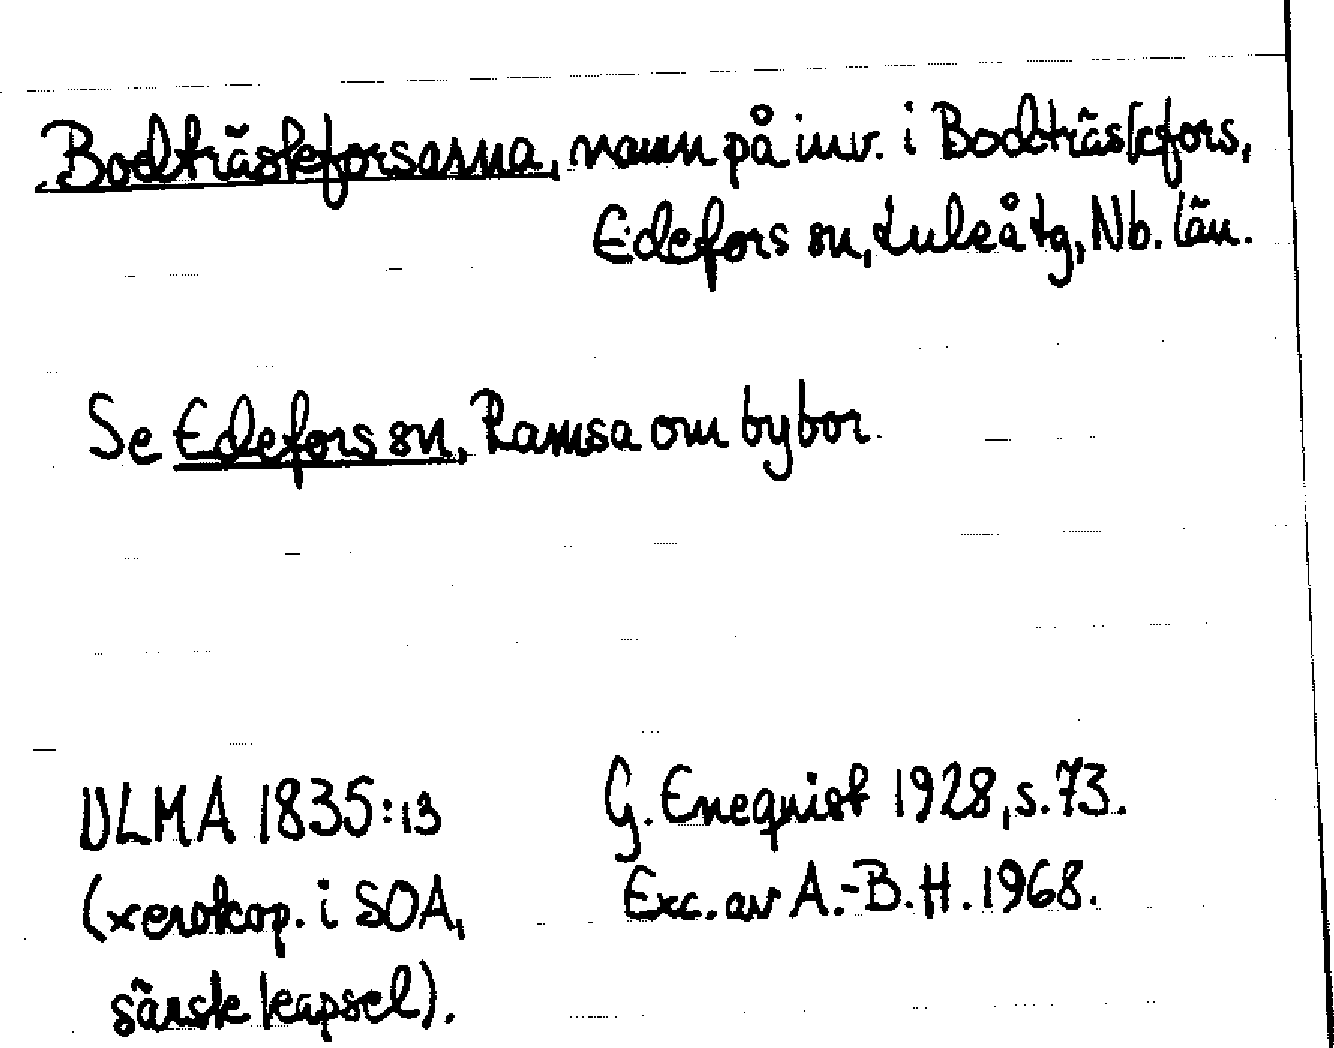 Bodträskforsarna, namn på inv. i Bodträskfors,
Edefors sn, Luleå tg, Nb. län.
Se Edefors sn, Ramsa om bybor.
ULMA 1835:13
(xerokop. i SOA,
särsk kapsel).
G. Enequist 1928, s. 73.
Exc. av A.-B. H. 1968.